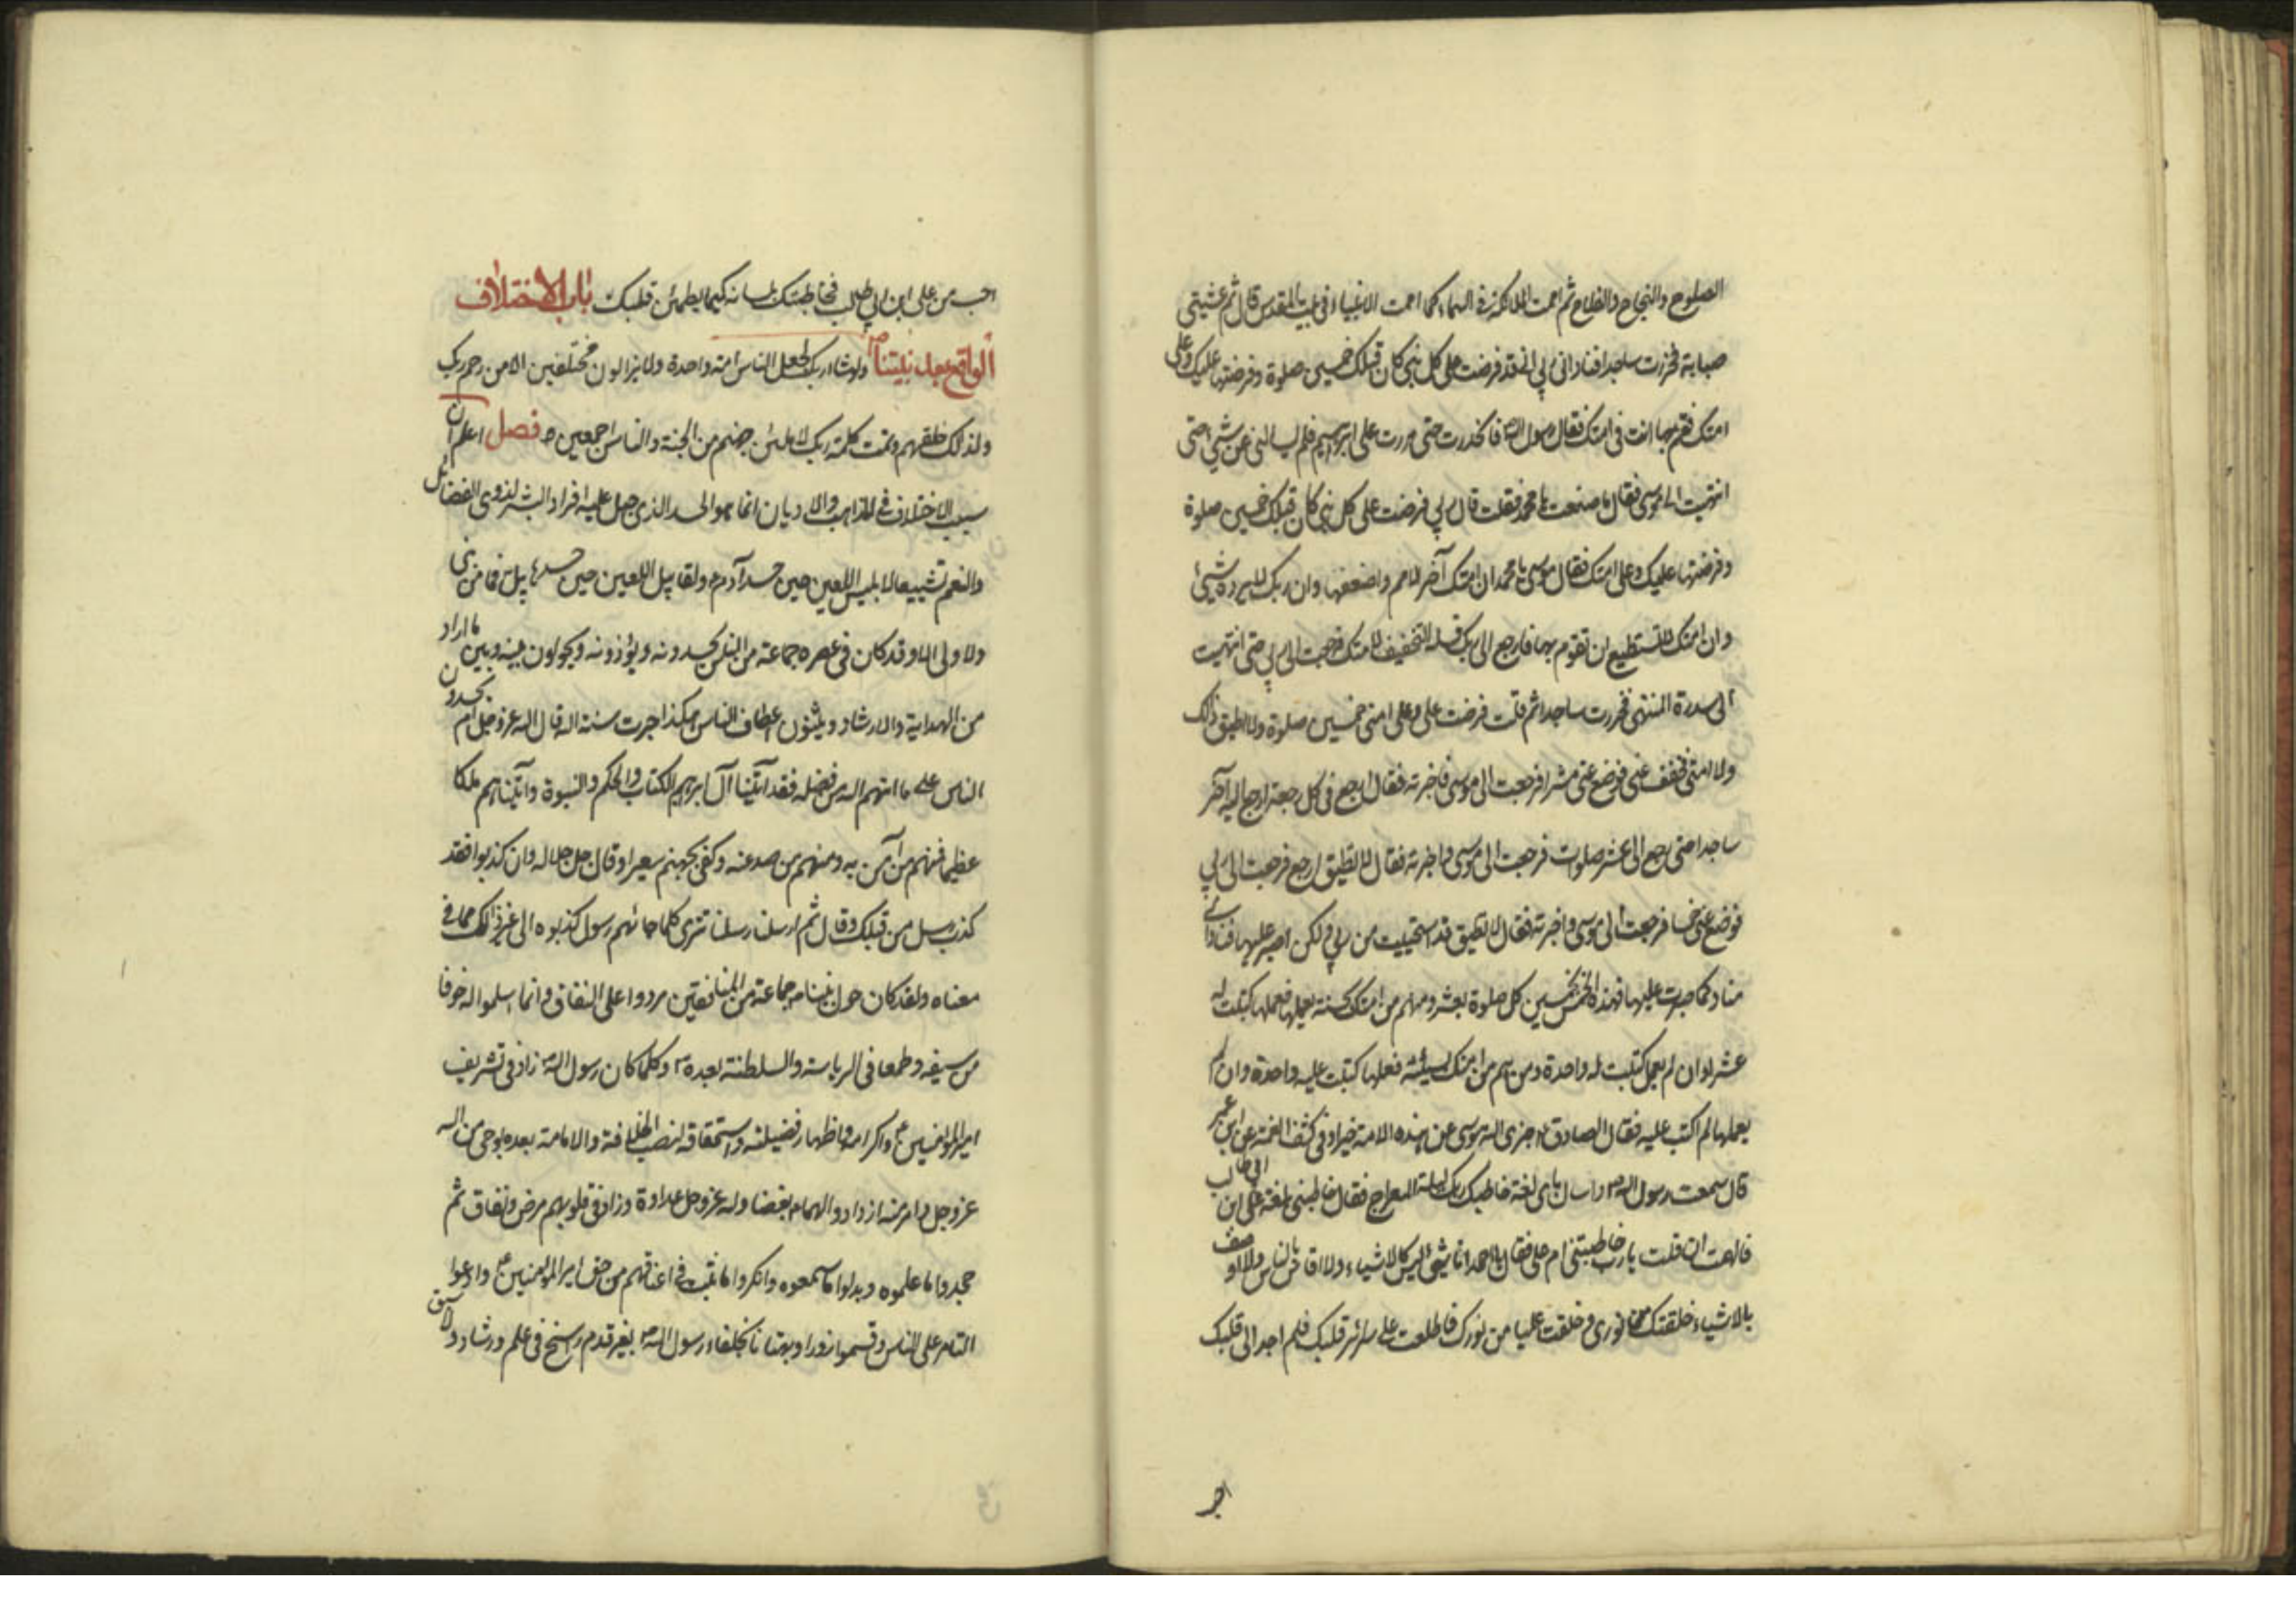 الصلوح والنجاح والفلاح ثم اممت الملائكة فى السماء كما اممت الانبياء فى بيت المقدس قال ثم غشيتنى
صبابة فخررت ساجدا فنادانى ربى انى قد فرضت على كل نبى كان قبلك خمسين صلوة وفرضتها عليك وعلى
امتك فقم بها انت فى امتك فقال رسول الله ص فانحدرت حتى مررت على ابراهيم فلم يسالنى عن شيئ حتى
انتهيت الى موسى فقال ما صنعت يا محمد فقلت قال ربى فرضت على كل نبى كان قبلك خمسين صلوة
وفرضتها عليك وعلى امتك فقال موسى يا محمد ان امتك آخر الامم واضعفها وان ربك لا يرده شيئ
وان امتك لا تستطيع ان تقوم بها فارجع الى ربك فسله التخفيف لامتك فرجعت الى ربى حتى انتهيت
الى سدرة المنتهى فخررت ساجدا ثم قلت فرضت على وعلى امتى خمسين صلوة ولا اطيق ذلك
ولا امتى فخفف عنى فوضع عنى عشرا فرجعت الى موسى فاخبرته فقال ارجع فى كل رجعة ارجع اليه آخر
ساجدا حتى رجع الى عشر صلوات فرجعت الى موسى واخبرته فقال لا تطيق ارجع فرجعت الى ربى
فوضع عنى خمسا فرجعت الى موسى واخبرته فقال لا تطيق قد استحييت من ربى ولكن اصبر عليها فنادانى
مناد كما صبرت عليها فهذه الخمس بخمسين كل صلوة بعشر ومن هم من امتك بحسنة يعملها فعملها كتبت له
عشرا وان لم يعمل كتبت له واحدة ومن هم من امتك بسيئة فعملها كتبت عليه واحدة وان لم
يعملها لم اكتب عليه فقال الصادق ع جزى الله موسى عن هذه الامة خيرا وفى كشف الغمة عن ابن عمر
قال سمعت رسول الله ص وسال باى لغة خاطبك ربك ليلة المعراج فقال خاطبنى بلغة على ابن ابى طالب
فالهمت ان قلت يا رب خاطبتنى ام على فقال يا احمد انا شيئ ليس كالاشياء ولا اقاس بالناس ولا اوصف
بالاشياء خلقتك من نورى وخلقت عليا من نورك فاطلعت على سرائر قلبك فلم اجد الى قلبك
احب
احب من على ابن ابى طالب فخاطبتك بلسانه كيما يطمئن قلبك باب الاختلاف
الواقع بعد نبيتنا ص ولو شاء ربك لجعل الناس امة واحدة ولا يزالون مختلفين الا من رحم ربك
ولذالك خلقهم وتمت كلمة ربك لاملئن جهنم من الجنة والناس اجمعين فصل اعلم ان
سبب الاختلاف فى المذاهب والاديان انما هو الحسد الذى جبل عليه افراد البشر لذوى الفضائل
والنعم تشييعا لابليس اللعين حين حسد آدم ع ولقابيل اللعين حين حسد هابيل فما من نبى
ولا ولى الا وقد كان فى عصره جماعة من الناس يحسدونه ويؤذونه ويحولون بينه وبين ما اراد
من الهداية والارشاد ويثنون اعطاف الناس هكذا جرت سنة الله قال الله عز وجل ام يحسدون
الناس على ما اتيهم الله من فضله فقد آتينا آل ابراهيم الكتاب والحكم والنبوة وآتيناهم ملكا
عظيما فمنهم من آمن به ومنهم من صد عنه وكفى بجهنم سعيرا وقال جل جلاله وان كذبوا فقد
كذب رسل من قبلك وقال ثم ارسلنا رسلنا تترى كلما جائهم رسول كذبوه الى غير ذالك مما فى
معناه ولقد كان حول نبينا ص جماعة من المنافقين مردوا على النفاق وانما اسلموا له خوفا
من سيفه وطمعا فى الرياسة والسلطنة بعده ص وكلما كان رسول الله ص زاد فى تشريف
امير المؤمنين ع واكرامه واظهار فضيلته واستحقاقه لنصب الخلافة والامامة بعده بوحى من الله
عز وجل وامر منه ازدادوا لهما ع بغضا وله عز وجل عداوة وزاد فى قلوبهم مرض ونفاق ثم
جحدوا ما علموه وبدلوا ما سمعوه وانكروا ما ثبت فى اعناقهم من حق امير المؤمنين ع وادعوا
التامر على الناس وتسموا زورا وبهتانا بخلفاء رسول الله ص بغير قدم راسخ فى علم ورشاد ولا سبق